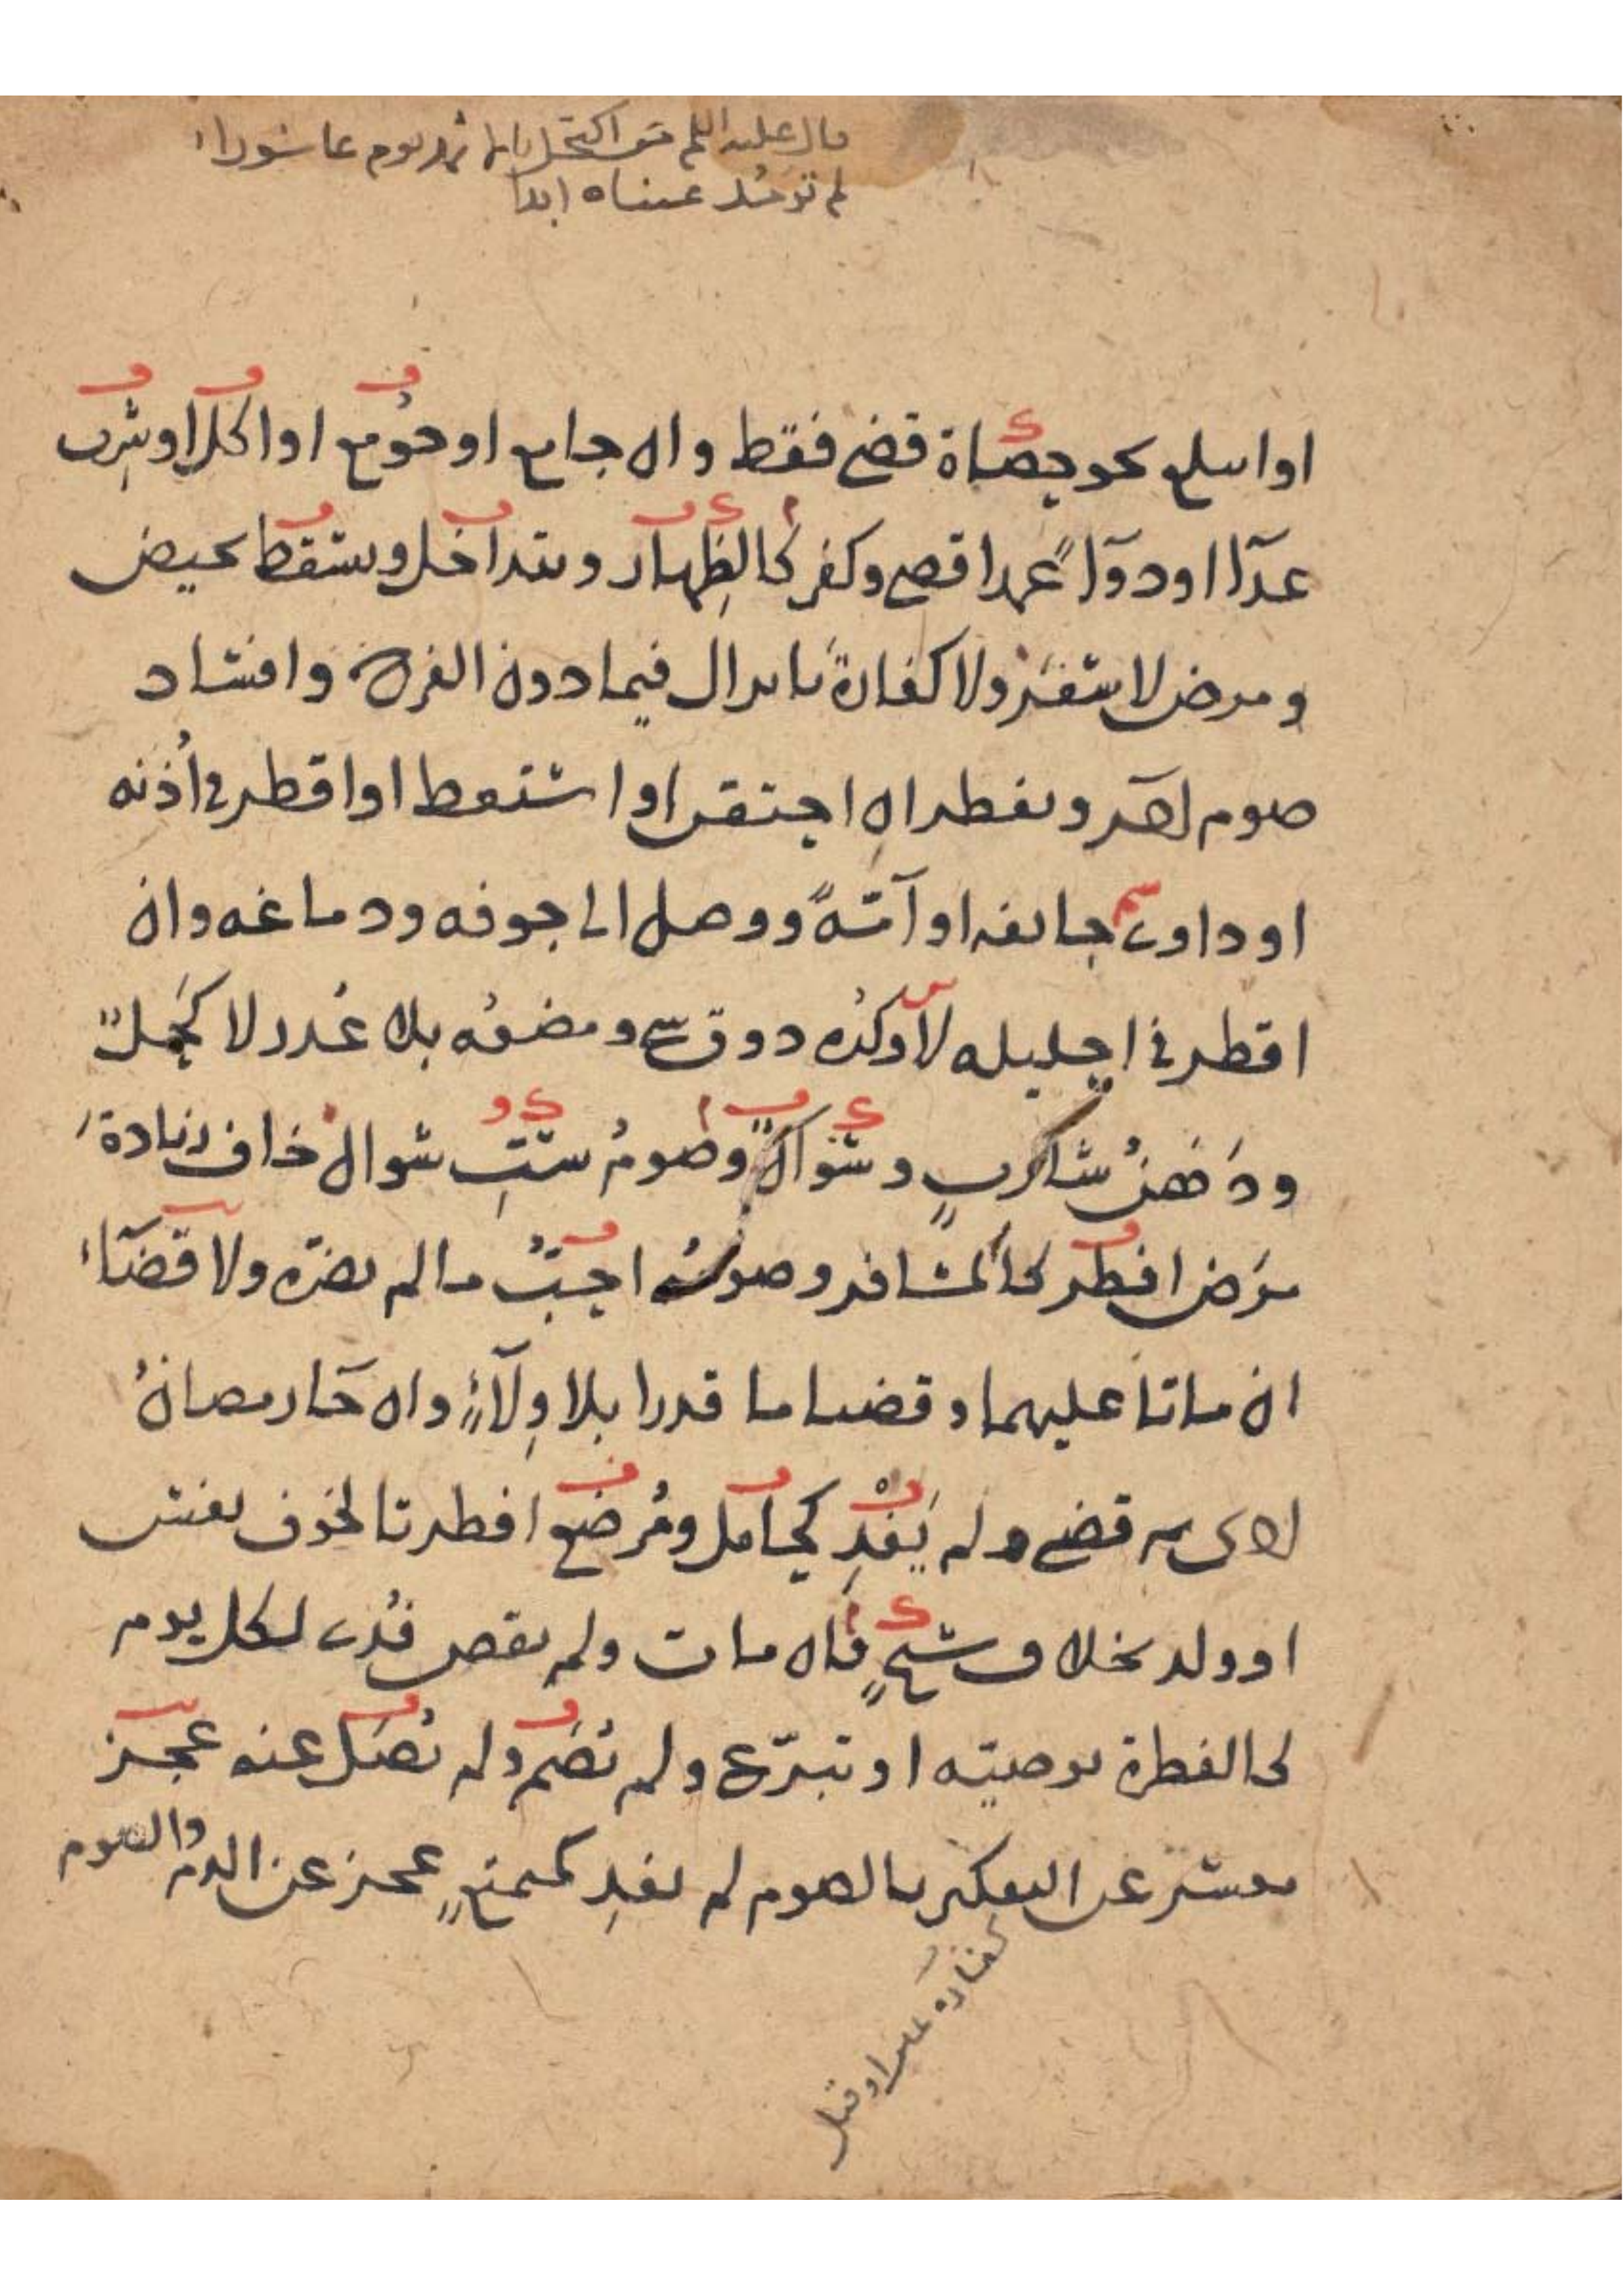 قال عليه السلم من اكتحل بالاثمد يوم عاشوراء
لم ترمد عيناه ابدا
او ابتلع نحو حصاة قضى فقط وان جامع او جومع او اكل او شرب
غذآا او دوآءً عمدا قضى وكفر كالظِهار ويتداخل ويسقط بحيض
ومرض لا بسفر ولا كفارة بانزال فيما دون الفرج وافساد
صوم اخر ويفطر ان احتقن او استعط او اقطر في أذنه
او داوى جائفة او آمّةً ووصل الى جوفه ودماغه وان
اقطر في احليله لا وكُره ذوق شي ومضغه بلا عُذر لا كُحلٌ
ودَهنُ شاربٍ وسواكٌ وصومُ ستِّ شوال خاف زيادةَ
مرَض افطر كالمسافر وصومُه احبُّ ما لم يضرّه ولا قضآء
ان ماتا عليهما وقضيا ما قدرا بلا وِلآءٍ وان جآ رمضانُ
اخر قضى ولم يَفْدِ كحامل ومُرضع افطرتا لخوف نفس
او ولد بخلاف شيخٍ فان مات ولم يقض فُدى لكل يوم
كالفطرة بوصيته او تبرّع ولم يُصَم ولم يُصَل عنه عجز
معسر عن التكفير بالصوم لم يفدِ كمتمتعٍ عجز عن الدم والصوم
كفارة يمين او قتل